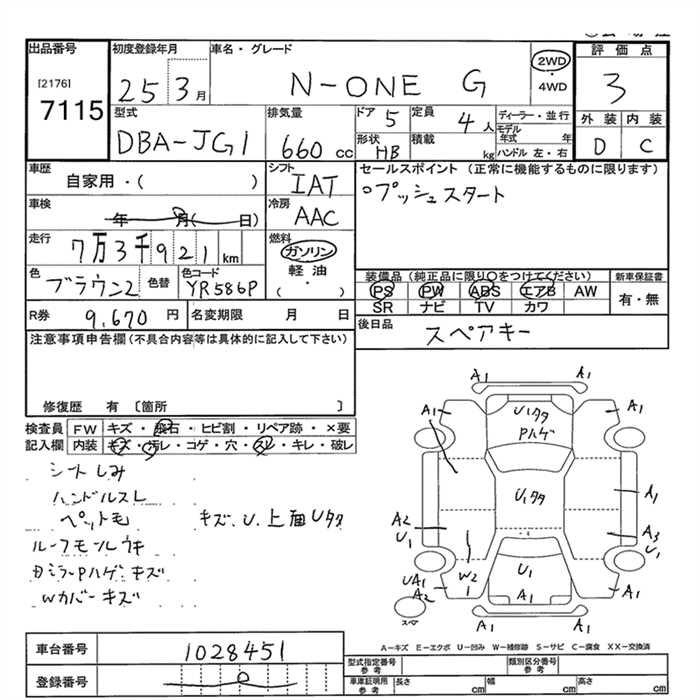 出品番号 初度登録年月 車名・グレード 評価点
[2176] 7115 25 3月 N-ONE G 2WD・4WD 3
型式 排気量 ドア 5 定員 4人 ディーラー・並行 外装 内装
DBA-JG1 660cc 形状 HB 積載 kg モデル年式 年 ハンドル 左・右 D C
車歴 シフト セールスポイント(正常に機能するものに限ります)
自家用・( ) IAT °プッシュスタート
車検 年 月( 日) 冷房 AAC
走行 7万3千921km 燃料 ガソリン
軽油
・( )
色 ブラウン2 色替 色コード YR586P
装備品(純正品に限り○をつけてください) 新車保証書
PS PW ABS エアB AW 有・無
SR ナビ TV カワ
R券 9,670円 名変期限 月 日 後日品 スペアキー
注意事項申告欄(不具合内容等は具体的に記入して下さい)
修復歴 有 〔箇所 〕
検査員 FW キズ・飛石・ヒビ割・リペア跡・×要
記入欄 内装 キズ・汚レ・コゲ・穴・スレ・キレ・破レ
シートしみ
ハンドルスレ
ペット毛 キズ、U、上面Uタタ
ルーフモールウキ
Bミラー Pハゲ キズ
Wカバーキズ
A1 A1
A1 Uタタ A1
Pハゲ
Uタタ A1
A2 A3
U1 U1
UA1 W2 U1 A1
A2 1 A1
スペア A1 A1
A=キズ E=エクボ U=凹み W=補修跡 S=サビ C=腐食 XX=交換済
車台番号 1028451
登録番号
型式指定番号 参考 類別区分番号 参考
車庫証明用 参考 長さ cm 幅 cm 高さ cm